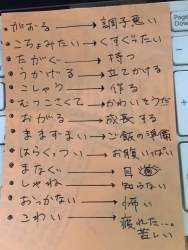 がおる → 調子悪い
こちょみたい → くすぐったい
たがぐ → 持つ
うかける → 立てかける
こしゃう → 作る
むっつこくて → かわいそうだ
おがる → 成長する
まますまい → ご飯の準備
はらくっつい → お腹いっぱい
まなぐ → 目
しゃね → 知らない
おっかない → 怖い
こわい → 疲れた…。
苦しい
Page Down